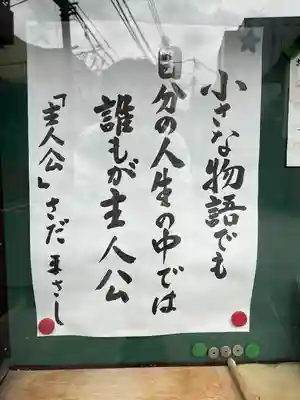 小さな物語でも
自分の人生の中では
誰もが主人公
「主人公」さだまさし